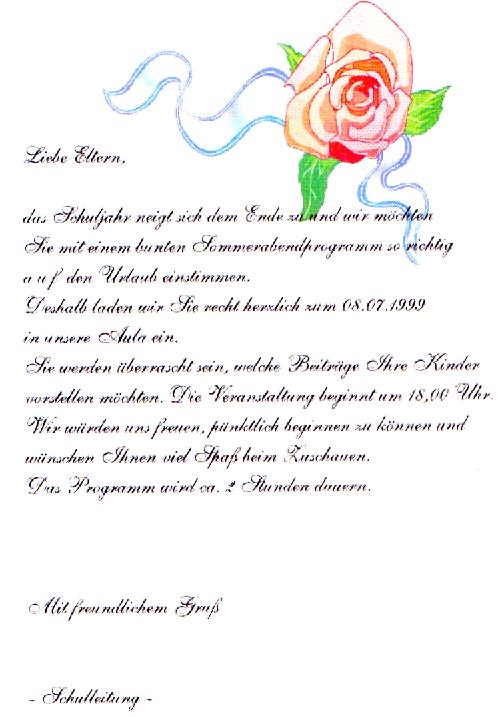 Liebe Eltern,
das Schuljahr neigt sich dem Ende zu und wir möchten
Sie mit einem bunten Sommerabendprogramm so richtig
a u f den Urlaub einstimmen.
Deshalb laden wir Sie recht herzlich zum 08.07.1999
in unsere Aula ein.
Sie werden überrascht sein, welche Beiträge Ihre Kinder
vorstellen möchten. Die Veranstaltung beginnt um 18,00 Uhr.
Wir würden uns freuen, pünktlich beginnen zu können und
wünschen Ihnen viel Spaß beim Zuschauen.
Das Programm wird ca. 2 Stunden dauern.
Mit freundlichem Gruß
- Schulleitung -